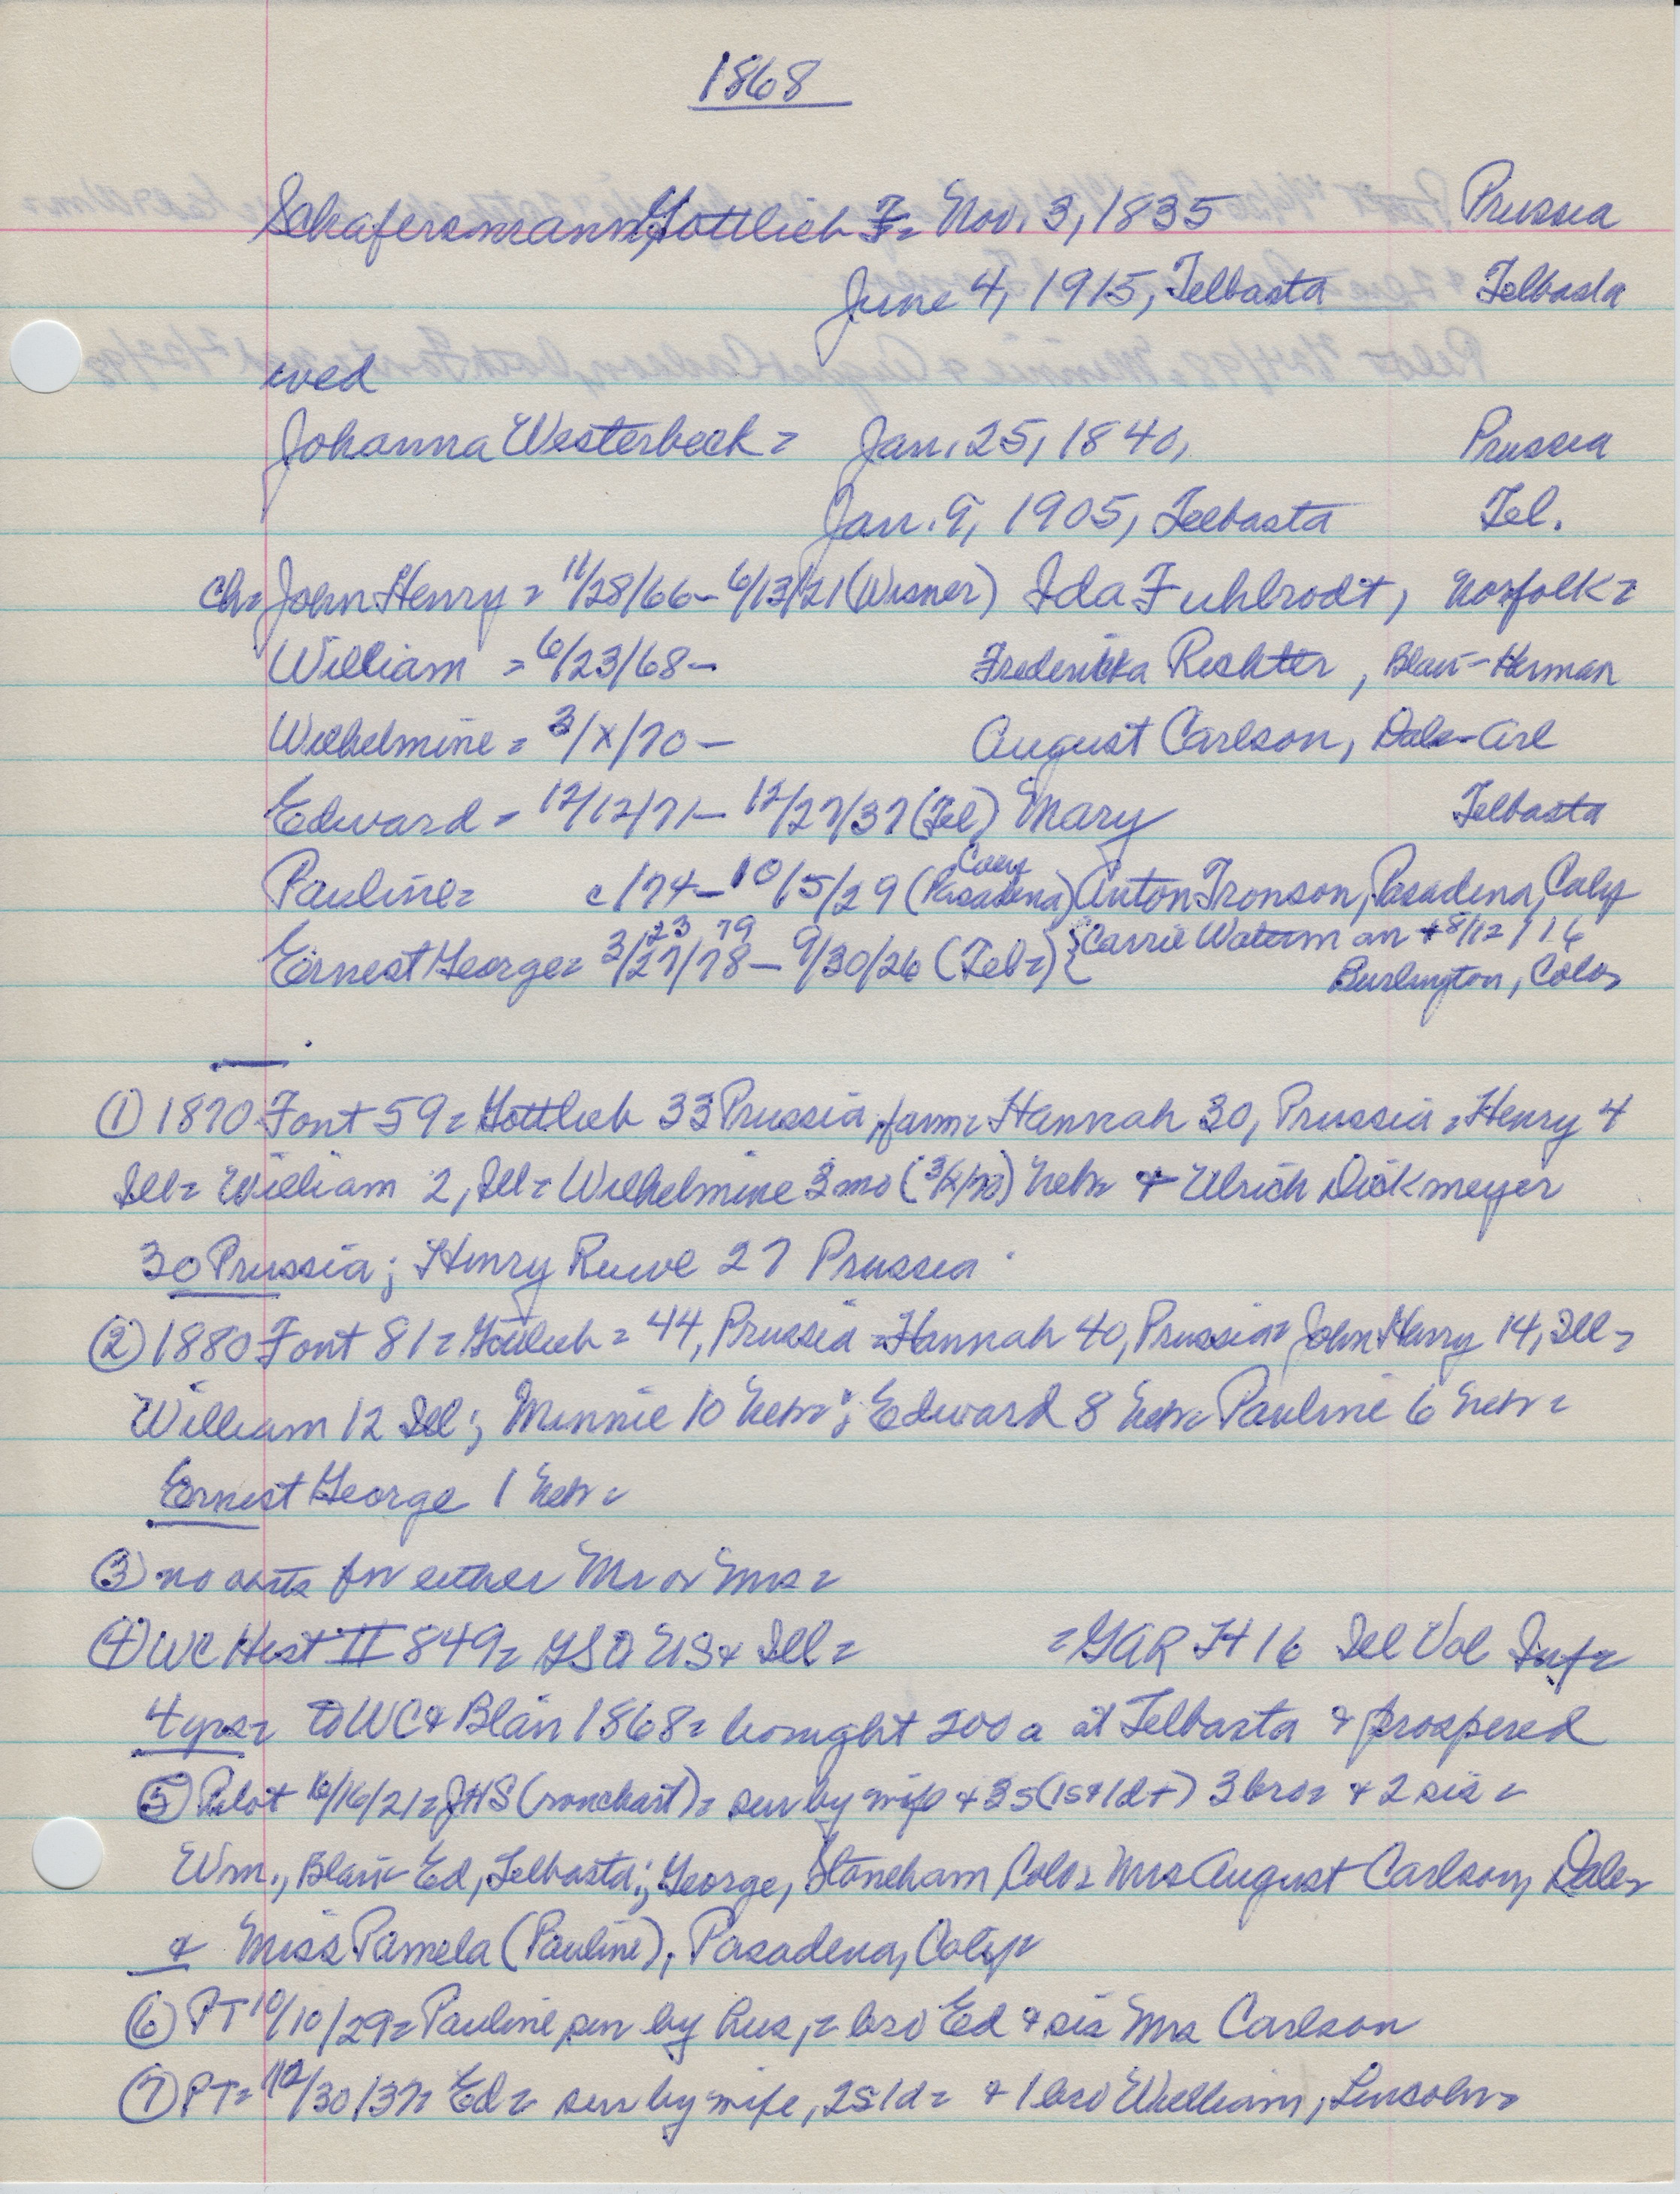 1868
Schafersmann, Gottlieb F= Nov. 3, 1835 Prussia
June 4, 1915, Telbasta Telbasta
wed
Johanna Westerbeck= Jan. 25, 1840, Prussia
Jan. 9, 1905, Telbasta Tel.
ch= John Henry= 11/28/66- 6/13/21 (Wisner) Ida Fuhlrodt, Norfolk=
William =6/23/68- Frederikka Richter, Blair-Herman
Wilhelmine= 3/x/70- August Carlson, Dale-Arl
Edward= 12/12/71- 12/27/37 (Tel) Mary Telbasta
Pauline= c/74- 10/5/29 (Pasadena Calif) Anton Tronson, Pasadena, Calif
23 79
Ernest George= 3/27/78- 9/30/26 (Telb=) {Carrie Waterman +8/12/16
Burlington, Colo=
① 1870 Font 59= Gottlieb 33 Prussia, farm= Hannah 30, Prussia= Henry 4
Ill= William 2, Ill= Wilhelmine 3mo (3/x/70) Neb= + Ulrich Dickmeyer
30 Prussia; Henry Ruwe 27 Prussia
② 1880 Font 81= Gottlieb= 44, Prussia= Hannah 40, Prussia= John Henry 14, Ill=
William 12 Ill; Minnie 10 Neb=; Edward 8 Neb= Pauline 6 Neb=
Ernest George 1 Neb=
③ no obits for either Mr or Mrs=
④ WC Hist II 849= GSO US+ Ill= =GAR H 16 Ill Vol Inf=
4yrs= to WC+ Blair 1868= bought 200a at Telbasta + prospered
⑤ Pilot 6/16/21= JHS (ronchart)= sur by wife + 3s (1s+1d+) 3 bro= + 2 sis=
Wm., Blair- Ed, Telbasta; George, Stoneham, Colo= Mrs August Carlson, Dale=
+ Miss Pamela (Pauline), Pasadena, Calif=
⑥ PT 10/10/29= Pauline, sur by hus,= bro Ed + sis Mrs Carlson
⑦ PT= 12/30/37= Ed= sur by wife, 2s 1d= + 1 bro William, Lincoln=